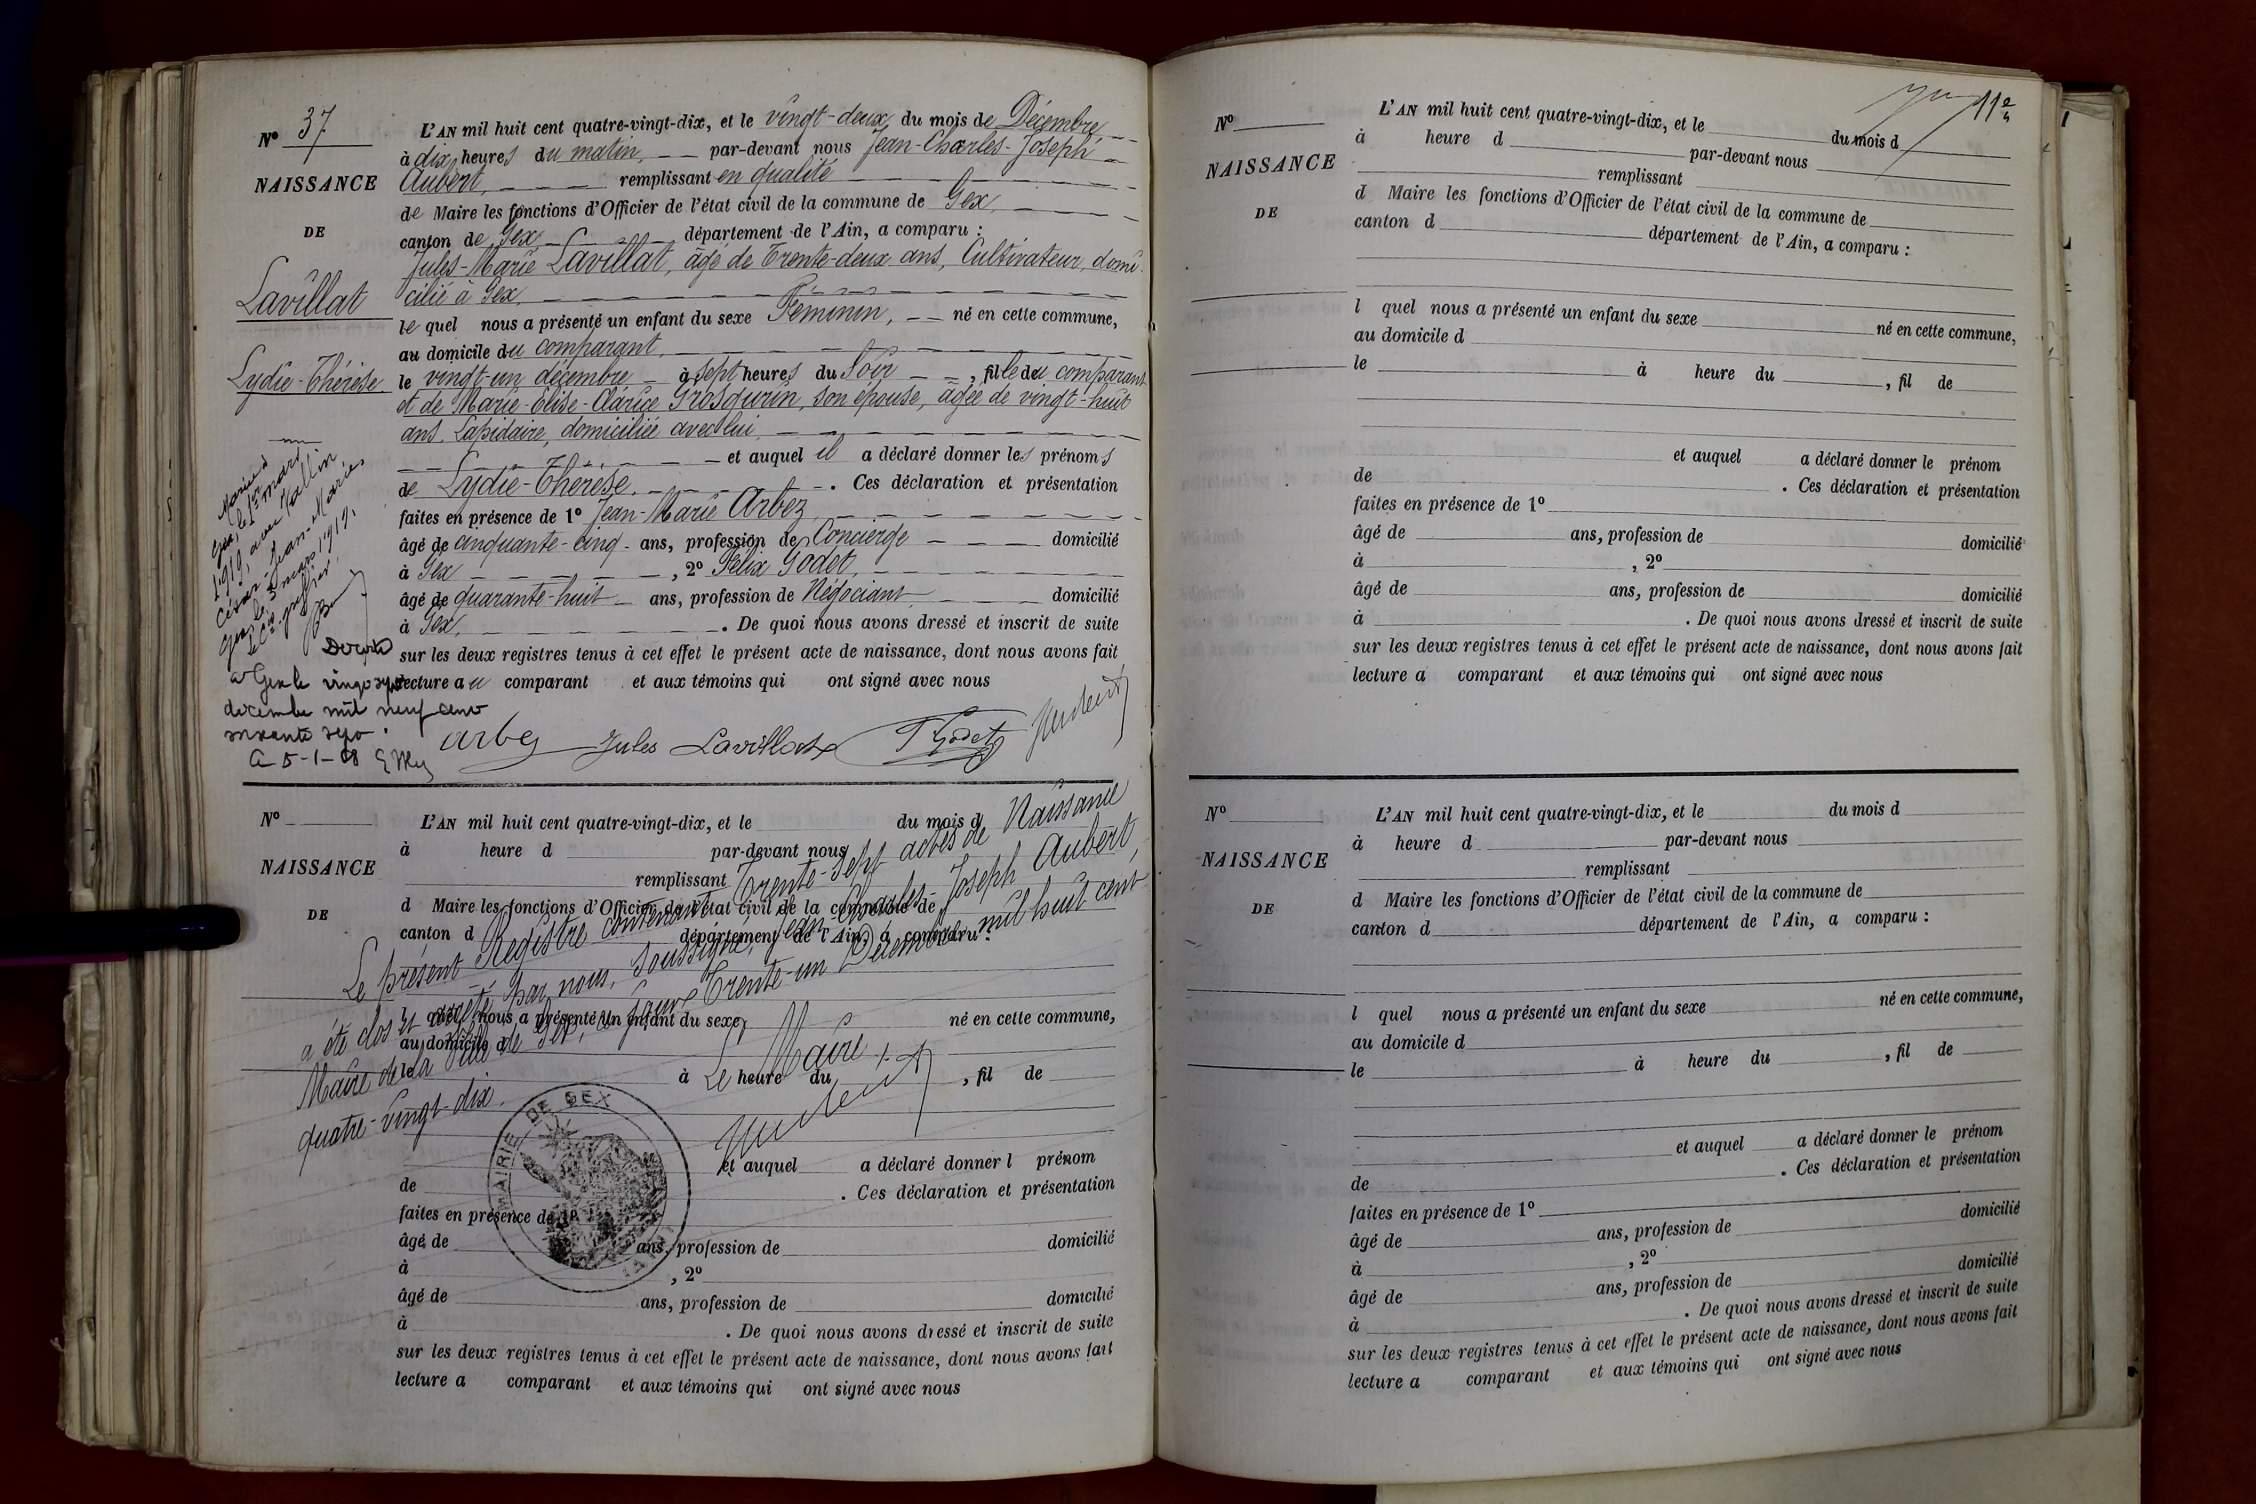 N° 37
NAISSANCE
DE
Lavillat
Lydie-Thérèse
L'AN mil huit cent quatre-vingt-dix, et le vingt-deux du mois de Décembre
à dix heures du matin, par-devant nous Jean-Charles-Joseph
Aubert, remplissant en qualité
de Maire les fonctions d'Officier de l'état civil de la commune de Gex,
canton de Gex département de l'Ain, a comparu :
Jules-Marie Lavillat, âgé de Trente-deux ans, Cultivateur, domi-
cilié à Gex,
lequel nous a présenté un enfant du sexe Féminin, né en cette commune,
au domicile du comparant,
le vingt-un décembre à sept heures du Soir, fille du comparant
et de Marie-Elise-Clarice Grosgurin, son épouse, âgée de vingt-huit
ans, Lapidaire, domiciliée avec lui,
et auquel il a déclaré donner les prénoms
de Lydie-Thérèse. Ces déclaration et présentation
faites en présence de 1° Jean-Marie Arbez,
âgé de cinquante-cinq ans, profession de Concierge domicilié
à Gex, 2° Félix Godet,
âgé de quarante-huit ans, profession de Négociant domicilié
à Gex. De quoi nous avons dressé et inscrit de suite
sur les deux registres tenus à cet effet le présent acte de naissance, dont nous avons fait
lecture au comparant et aux témoins qui ont signé avec nous
Arbez Jules Lavillat F Godet Aubert
Mariée à
Gex, le 1er mars
1919, avec Vallin
César-Jean-Marie,
Gex, le 3 mars 1919.
le Cis greffier,
Décédée
à Gex le vingt sept
décembre mil neuf cent
soixante sept.
Le 5-1-68
N°
NAISSANCE
DE
L'AN mil huit cent quatre-vingt-dix, et le du mois d
à heure d par-devant nous
remplissant
d Maire les fonctions d'Officier de l'état civil de la commune de
canton d département de l'Ain, a comparu :
l quel nous a présenté un enfant du sexe né en cette commune,
au domicile d
le à heure du , fil de
et auquel a déclaré donner l prénom
de . Ces déclaration et présentation
faites en présence de 1°
âgé de ans, profession de domicilié
à , 2°
âgé de ans, profession de domicilié
à . De quoi nous avons dressé et inscrit de suite
sur les deux registres tenus à cet effet le présent acte de naissance, dont nous avons fait
lecture a comparant et aux témoins qui ont signé avec nous
Le présent Registre contenant Trente-sept actes de Naissance
a été clos et arrêté par nous, soussigné, Jean-Charles-Joseph Aubert,
Maire de la Ville de Gex, ce jour Trente-un Décembre mil huit cent
quatre-vingt-dix.
Le Maire,
Aubert
MAIRIE DE GEX
(AIN)
11e
N°
NAISSANCE
DE
L'AN mil huit cent quatre-vingt-dix, et le du mois d
à heure d par-devant nous
remplissant
d Maire les fonctions d'Officier de l'état civil de la commune de
canton d département de l'Ain, a comparu :
l quel nous a présenté un enfant du sexe né en cette commune,
au domicile d
le à heure du , fil de
et auquel a déclaré donner le prénom
de . Ces déclaration et présentation
faites en présence de 1°
âgé de ans, profession de domicilié
à , 2°
âgé de ans, profession de domicilié
à . De quoi nous avons dressé et inscrit de suite
sur les deux registres tenus à cet effet le présent acte de naissance, dont nous avons fait
lecture a comparant et aux témoins qui ont signé avec nous
N°
NAISSANCE
DE
L'AN mil huit cent quatre-vingt-dix, et le du mois d
à heure d par-devant nous
remplissant
d Maire les fonctions d'Officier de l'état civil de la commune de
canton d département de l'Ain, a comparu :
l quel nous a présenté un enfant du sexe né en cette commune,
au domicile d
le à heure du , fil de
et auquel a déclaré donner le prénom
de . Ces déclaration et présentation
faites en présence de 1°
âgé de ans, profession de domicilié
à , 2°
âgé de ans, profession de domicilié
à . De quoi nous avons dressé et inscrit de suite
sur les deux registres tenus à cet effet le présent acte de naissance, dont nous avons fait
lecture a comparant et aux témoins qui ont signé avec nous